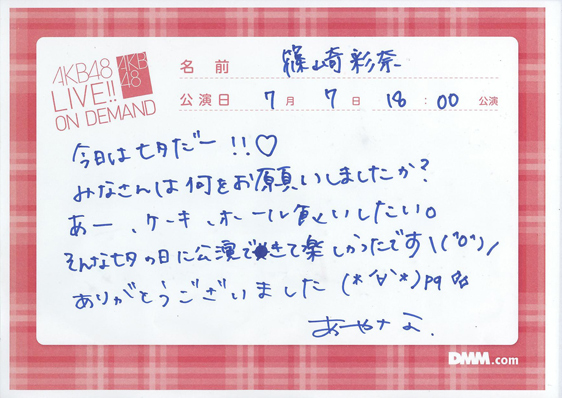 AKB48
LIVE!!
ON DEMAND
AKB
48
名前 篠崎彩奈
公演日 7月7日 18:00 公演
今日は七夕だー!!♡
みなさんは何をお願いしましたか?
あー、ケーキ、ホール食いしたい。
そんな七夕の日に公演できて楽しかったです\(°0°)/
ありがとうございました(*´∀`*)pq
あやなん.
DMM.com